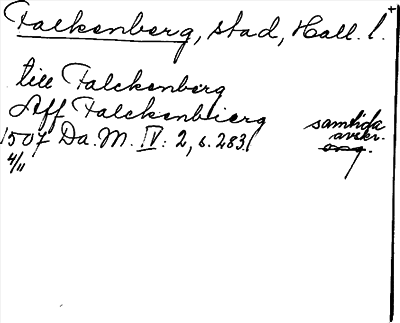 Falkenberg, stad, Hall. l.
till Falckenberg
Aff Falckenbierg
1507 Da. M. IV: 2, s. 283.
4/11
samtida
avskr.
orig.